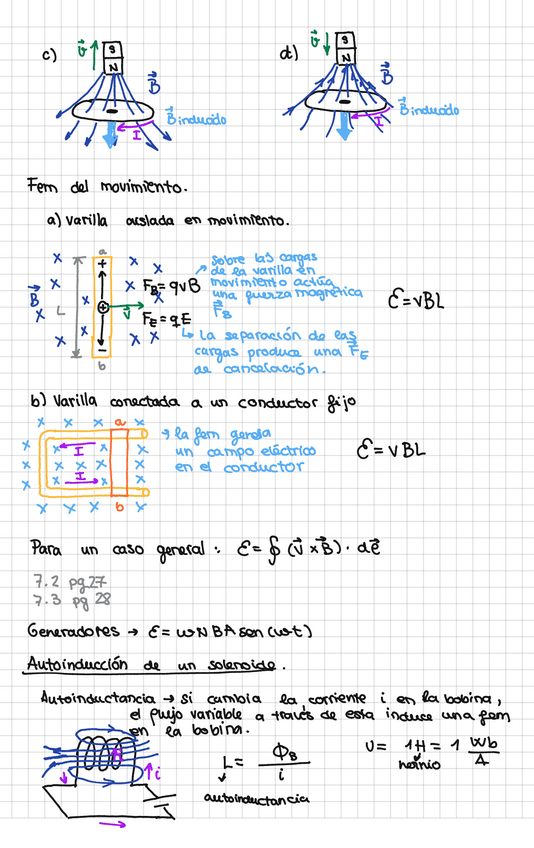 c) v⃗ S N B⃗ B⃗ inducido I
d) v⃗ S N B⃗ B⃗ inducido I
Fem del movimiento.
a) Varilla aislada en movimiento.
a
B⃗ L
+ + −
v⃗
b
F_B = qvB
F_E = qE
Sobre las cargas
de la varilla en
movimiento actúa
una fuerza magnética
F⃗_B
↳ La separación de las
cargas produce una F⃗_E
de cancelación.
Ɛ = vBL
b) Varilla conectada a un conductor fijo
x x x a x
I
I
x x x b x
→ la fem genera
un campo eléctrico
en el conductor
Ɛ = vBL
Para un caso general : Ɛ = ∮ (v⃗ x B⃗) · dℓ⃗
7.2 pg 27
7.3 pg 28
Generadores → Ɛ = ωNBA sen(ωt)
Autoinducción de un solenoide.
Autoinductancia → si cambia la corriente i en la bobina,
el flujo variable a través de esta induce una fem
en la bobina.
i
L = Φ_B / i
autoinductancia
U = 1H = 1 Wb/A